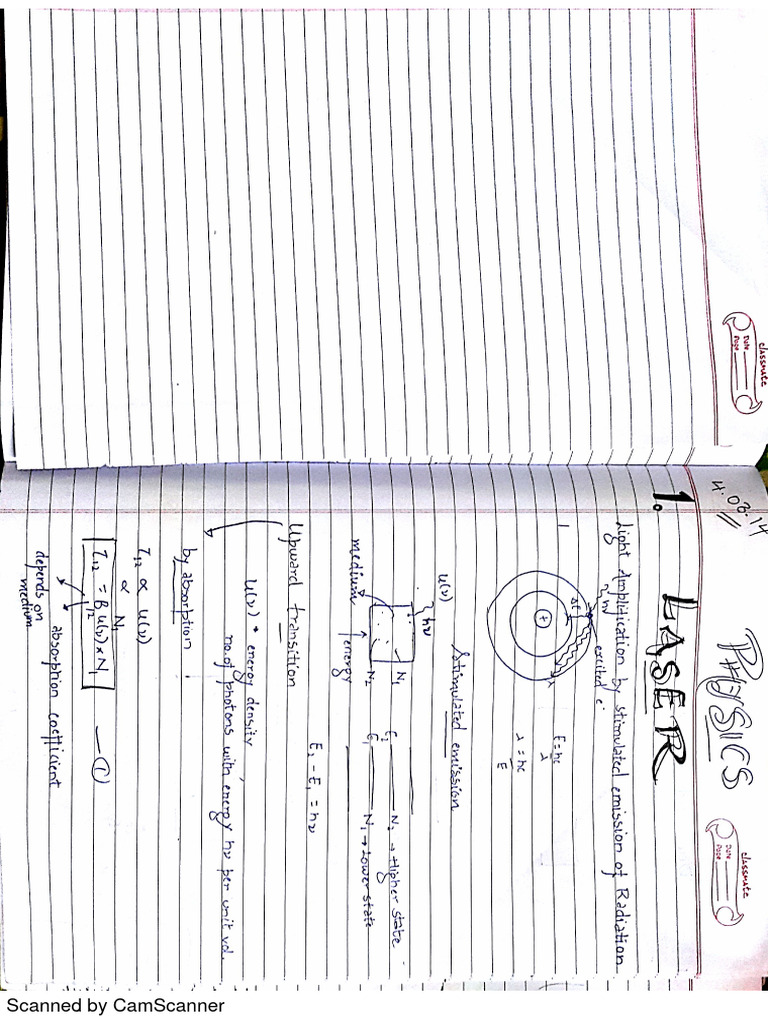 classmate
Date
Page
4.03.14
PHYSICS
classmate
Date
Page
1. LASER
Light Amplification by stimulated emission of Radiation
excited e⁻
ΔE
hν
λ
+
E = hc/λ
λ = hc/E
Stimulated emission
u(ν)
hν
N₁
N₂
medium
energy
E₂ N₂ → Higher state
E₁ N₁ → Lower state
E₂ - E₁ = hν
Upward transition
u(ν) • energy density
no. of photons with energy hν per unit vol.
by absorption
τ₁₂ ∝ u(ν)
∝ N₁
τ₁₂ = B₁₂ u(ν) × N₁ — (1)
absorption coefficient
depends on
medium
Scanned by CamScanner